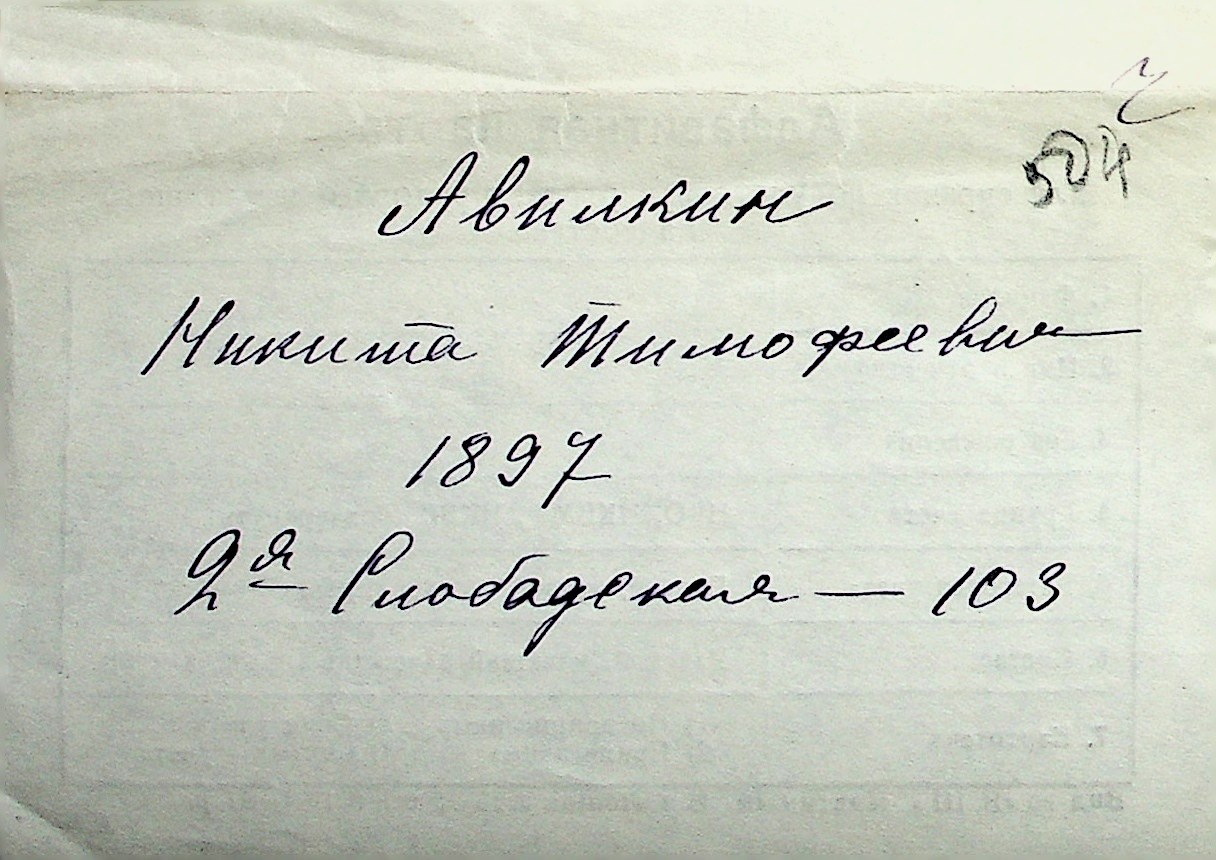 504
Авилкин
Никита Тимофеевич
1897
2я Слободская — 103